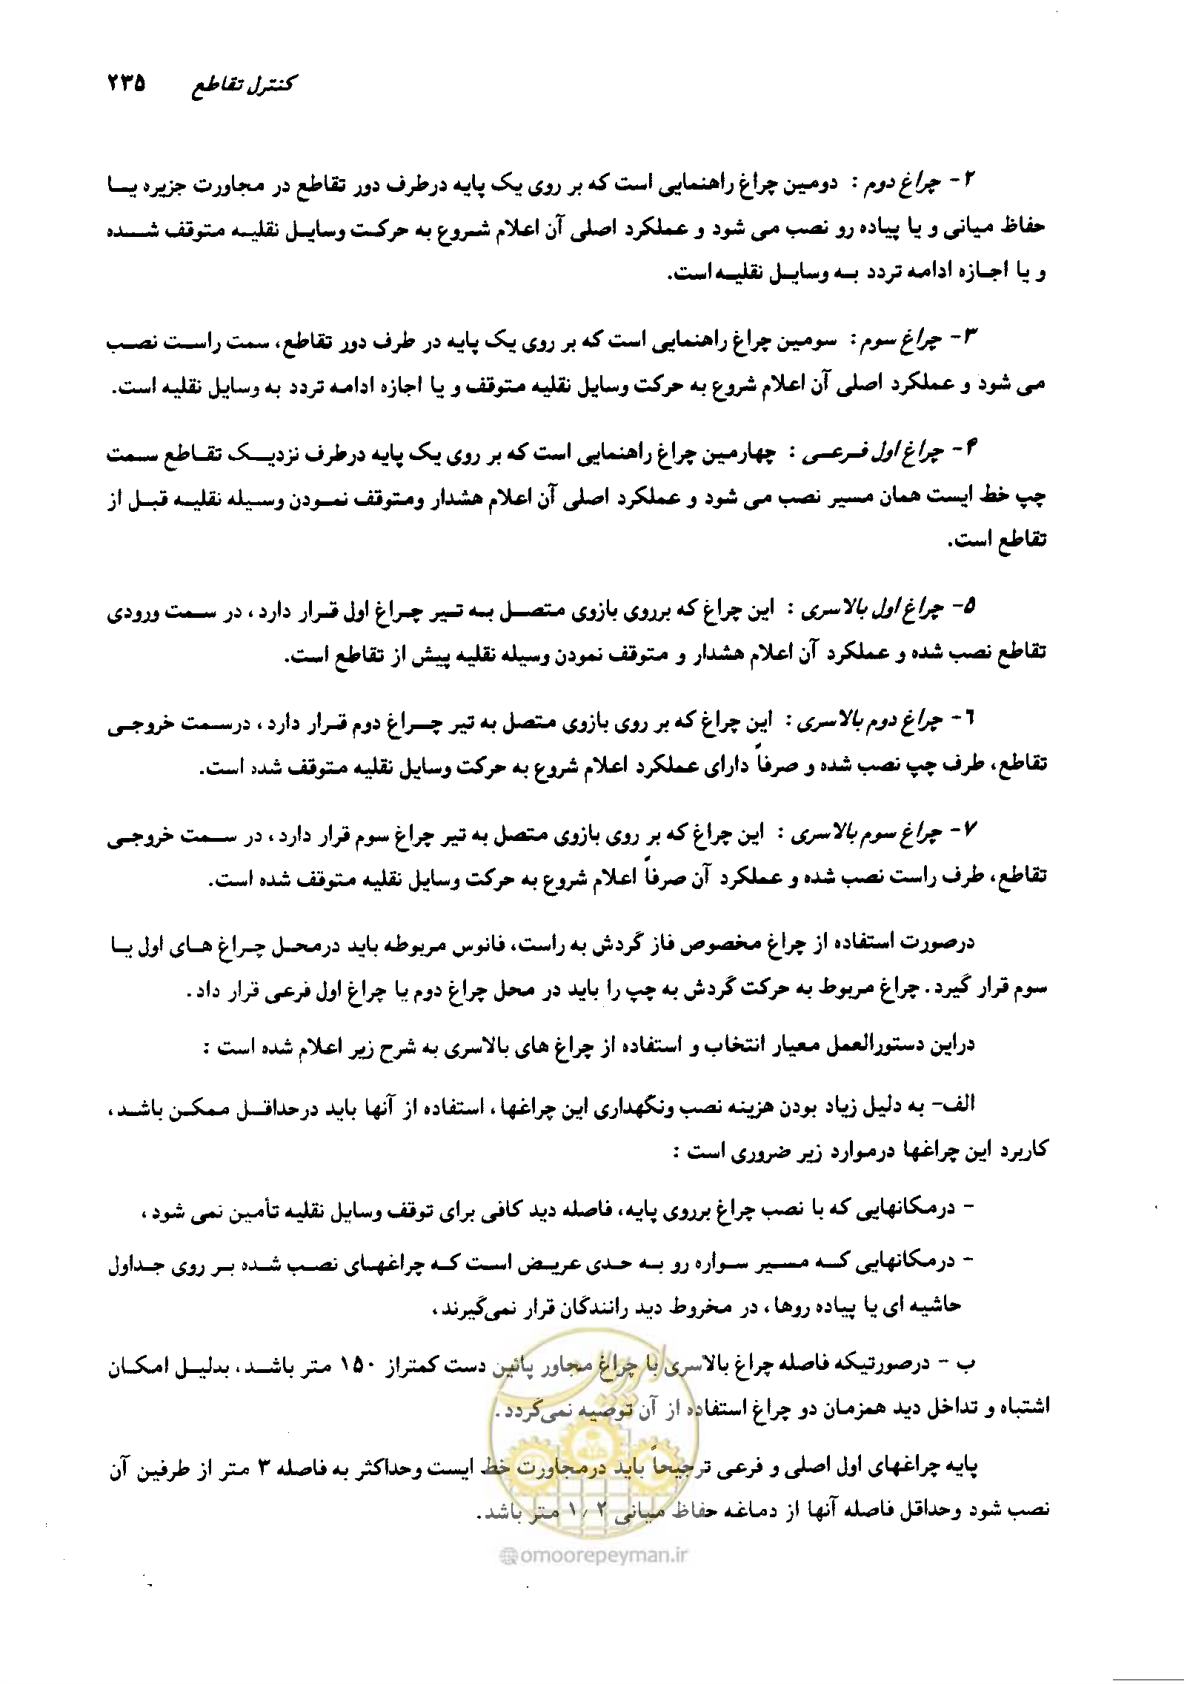 کنترل تقاطع ۲۳۵
۲- چراغ دوم : دومین چراغ راهنمایی است که بر روی یک پایه درطرف دور تقاطع در مجاورت جزیره یا
حفاظ میانی و یا پیاده رو نصب می شود و عملکرد اصلی آن اعلام شروع به حرکت وسایل نقلیه متوقف شده
و یا اجازه ادامه تردد به وسایل نقلیه است.
۳- چراغ سوم : سومین چراغ راهنمایی است که بر روی یک پایه در طرف دور تقاطع، سمت راست نصب
می شود و عملکرد اصلی آن اعلام شروع به حرکت وسایل نقلیه متوقف و یا اجازه ادامه تردد به وسایل نقلیه است.
۴- چراغ اول فرعی : چهارمین چراغ راهنمایی است که بر روی یک پایه درطرف نزدیک تقاطع سمت
چپ خط ایست همان مسیر نصب می شود و عملکرد اصلی آن اعلام هشدار ومتوقف نمودن وسیله نقلیه قبل از
تقاطع است.
۵- چراغ اول بالاسری : این چراغ که برروی بازوی متصل به تیر چراغ اول قرار دارد ، در سمت ورودی
تقاطع نصب شده و عملکرد آن اعلام هشدار و متوقف نمودن وسیله نقلیه پیش از تقاطع است.
۶- چراغ دوم بالاسری : این چراغ که بر روی بازوی متصل به تیر چراغ دوم قرار دارد ، درسمت خروجی
تقاطع، طرف چپ نصب شده و صرفاً دارای عملکرد اعلام شروع به حرکت وسایل نقلیه متوقف شده است.
۷- چراغ سوم بالاسری : این چراغ که بر روی بازوی متصل به تیر چراغ سوم قرار دارد ، در سمت خروجی
تقاطع، طرف راست نصب شده و عملکرد آن صرفاً اعلام شروع به حرکت وسایل نقلیه متوقف شده است.
درصورت استفاده از چراغ مخصوص فاز گردش به راست، فانوس مربوطه باید درمحل چراغ های اول یا
سوم قرار گیرد. چراغ مربوط به حرکت گردش به چپ را باید در محل چراغ دوم یا چراغ اول فرعی قرار داد.
دراین دستورالعمل معیار انتخاب و استفاده از چراغ های بالاسری به شرح زیر اعلام شده است :
الف- به دلیل زیاد بودن هزینه نصب ونگهداری این چراغها ، استفاده از آنها باید درحداقل ممکن باشد ،
کاربرد این چراغها درموارد زیر ضروری است :
- درمکانهایی که با نصب چراغ برروی پایه، فاصله دید کافی برای توقف وسایل نقلیه تأمین نمی شود ،
- درمکانهایی که مسیر سواره رو به حدی عریض است که چراغهای نصب شده بر روی جداول
حاشیه ای یا پیاده روها ، در مخروط دید رانندگان قرار نمی‌گیرند ،
ب - درصورتیکه فاصله چراغ بالاسری با چراغ مجاور پائین دست کمتراز ۱۵۰ متر باشد ، بدلیل امکان
اشتباه و تداخل دید همزمان دو چراغ استفاده از آن توصیه نمی‌گردد.
پایه چراغهای اول اصلی و فرعی ترجیحاً باید درمجاورت خط ایست وحداکثر به فاصله ۳ متر از طرفین آن
نصب شود وحداقل فاصله آنها از دماغه حفاظ میانی ۱/۲ متر باشد.
@omoorepeyman.ir